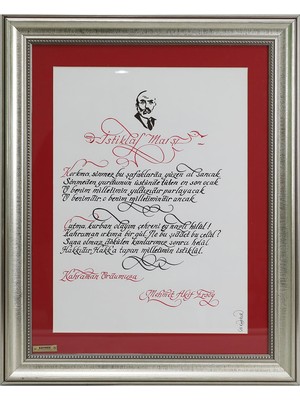 İstiklâl Marşı
Korkma, sönmez bu şafaklarda yüzen al sancak,
Sönmeden yurdumun üstünde tüten en son ocak
O benim milletimin yıldızıdır parlayacak
O benimdir, o benim milletimindir ancak
Çatma, kurban olayım çehreni ey nazlı hilâl!
Kahraman ırkıma bir gül. Ne bu şiddet bu celâl?
Sana olmaz dökülen kanlarımız sonra helâl
Hakkıdır Hakk'a tapan milletimin istiklâl.
Kahraman Ordumuza
Mehmet Akif Ersoy